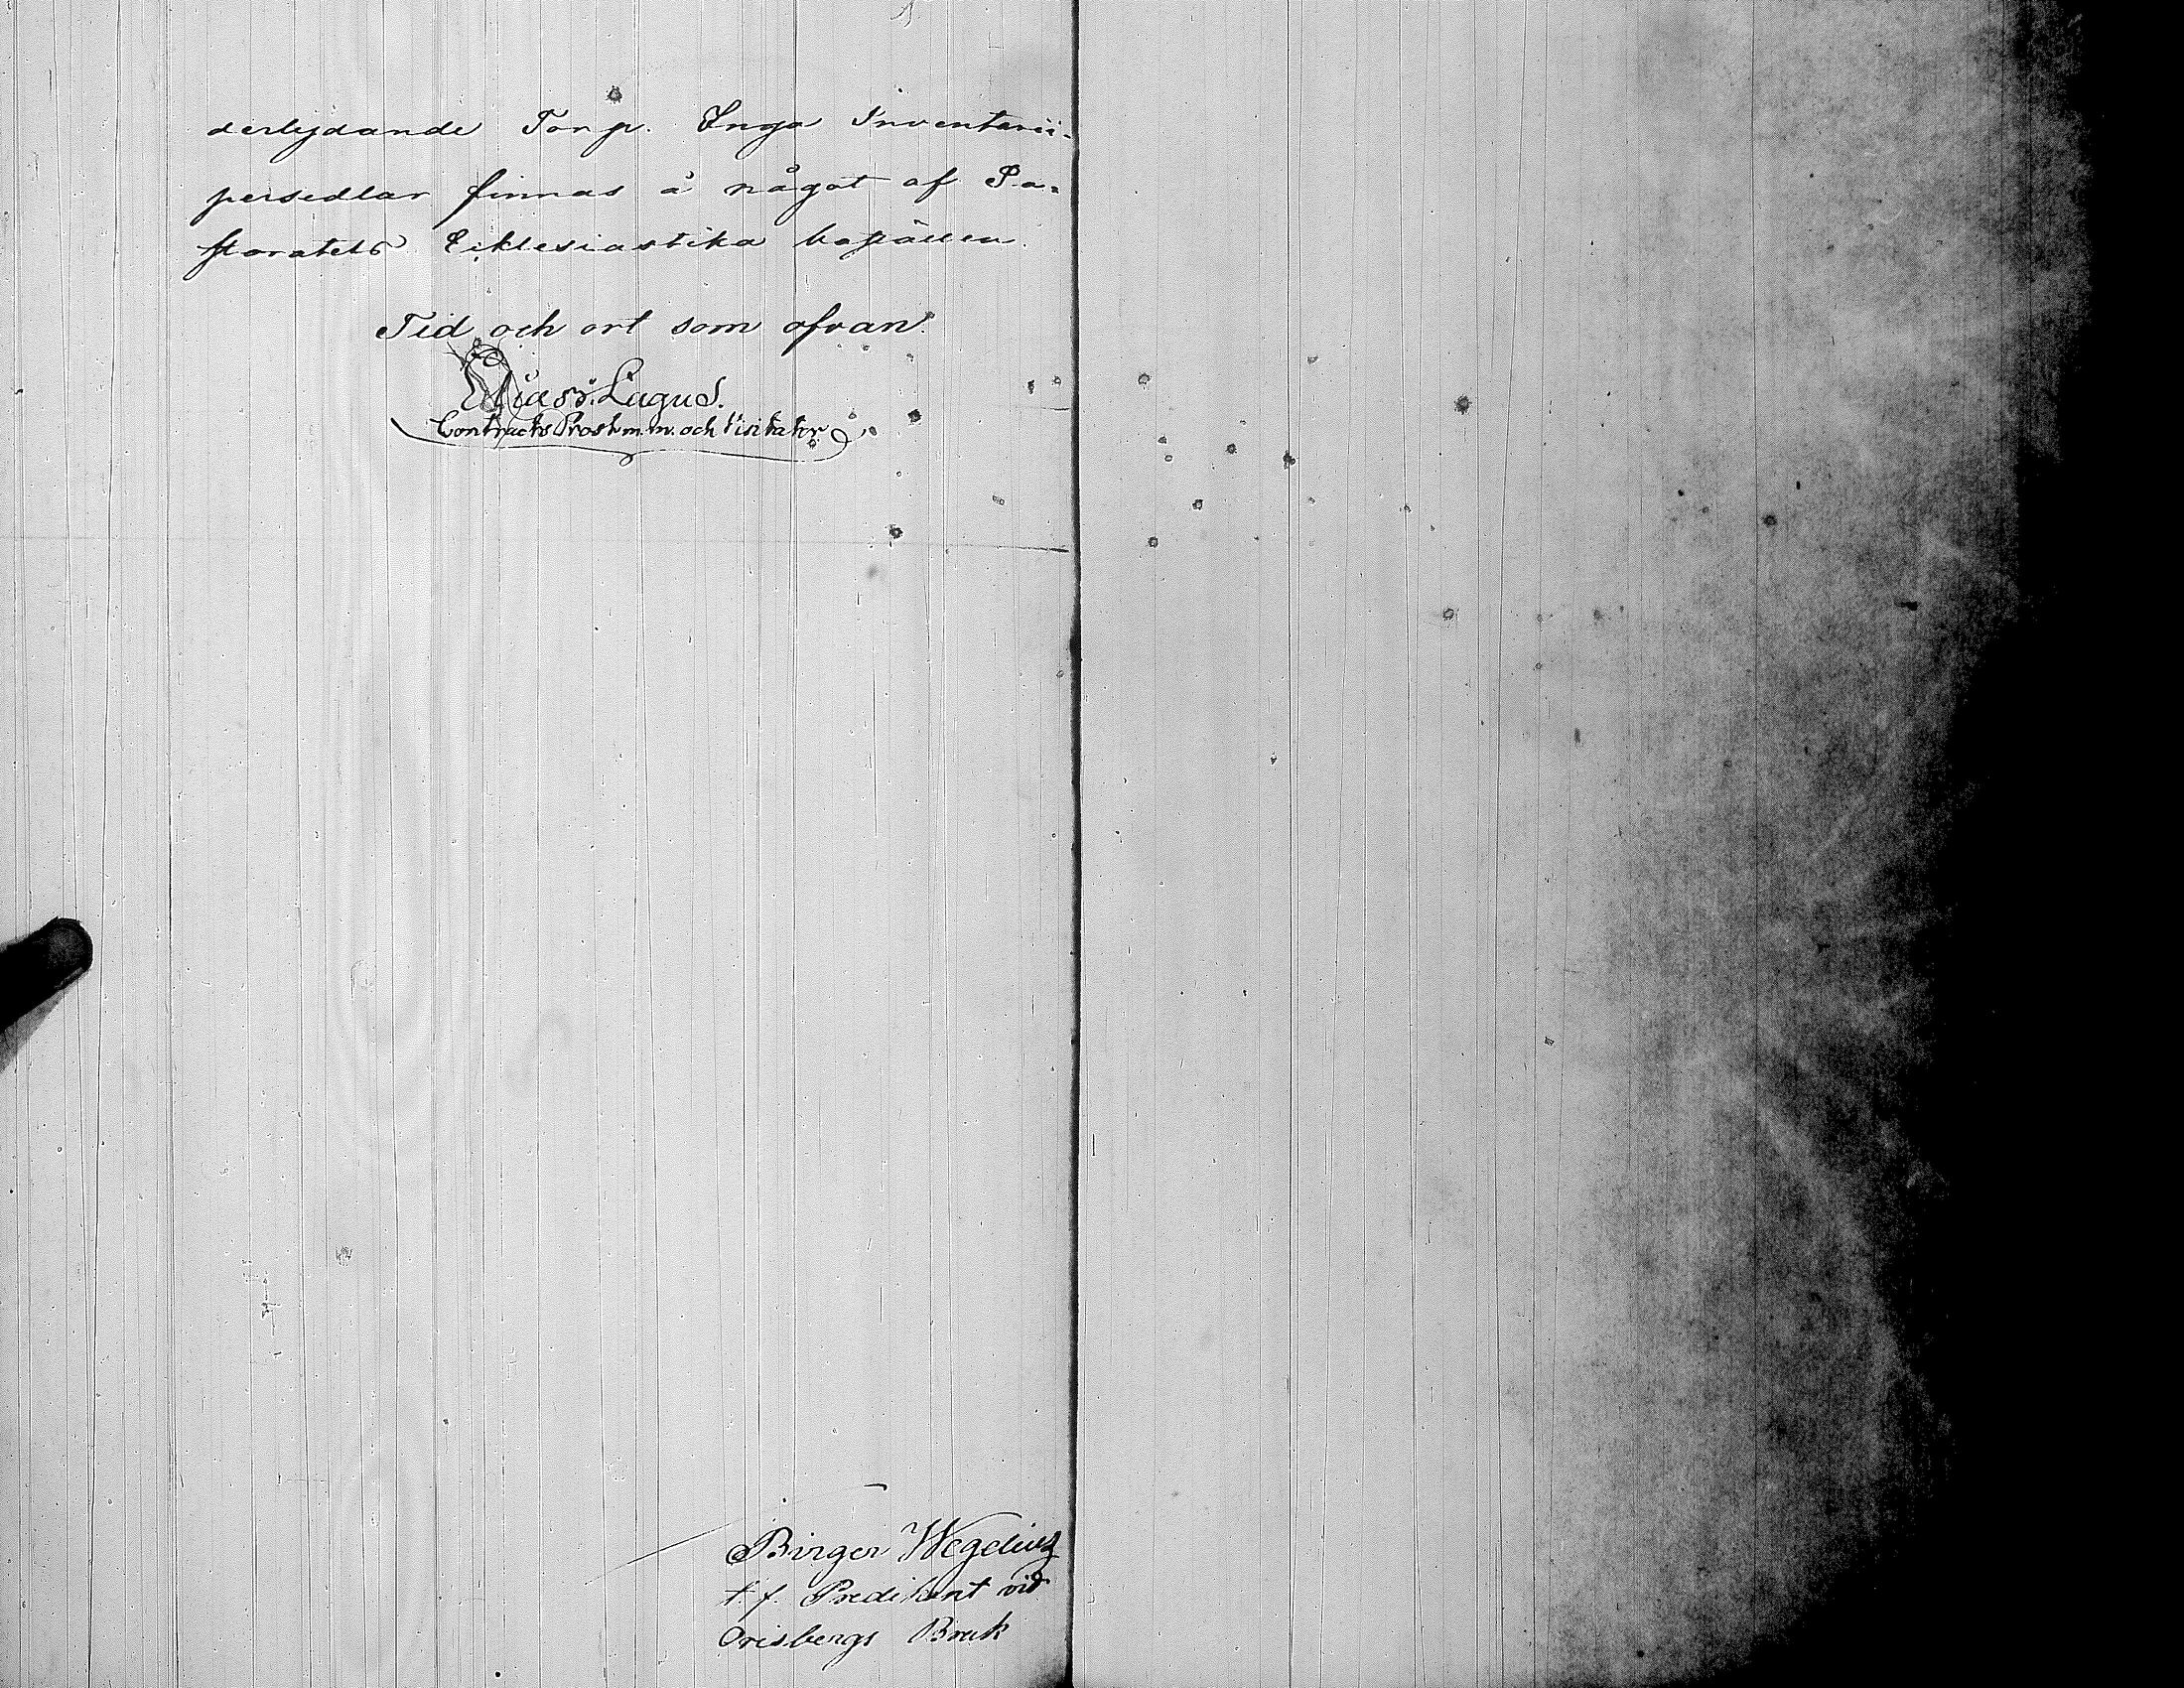 derlydande Torp. Inga Inventarii-
persedlar finnas å något af Pa=
storatets Ecklesiastika boställen.
Tid och ort som ofvan.
Elias Lagus.
Contracts Prost m. m. och Visitator
Birger Wegelius
t. f. Predikant vid
Orisbergs Bruk